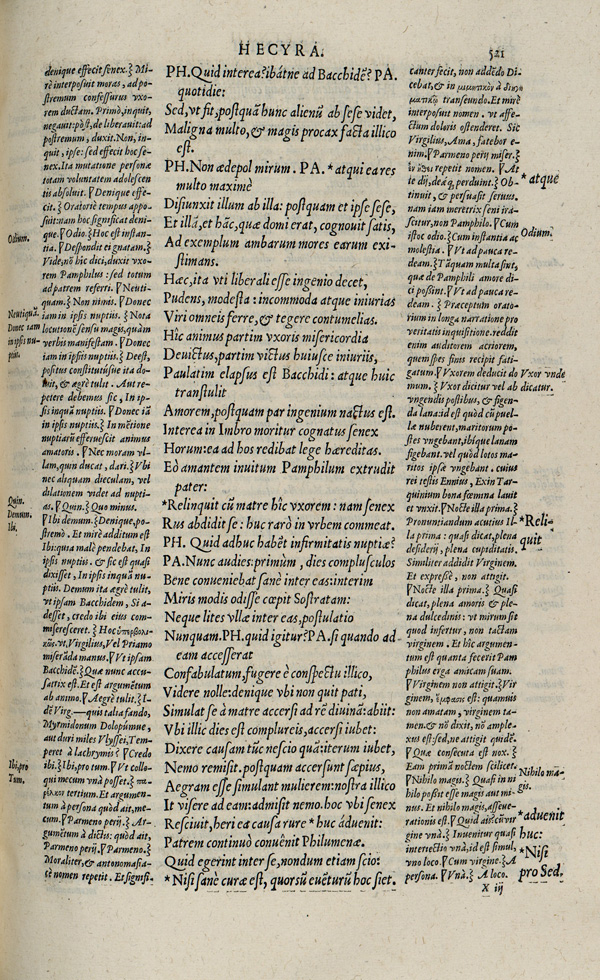 HECYRA.
521
denique effecit senex.} Mi-
rè interposuit moras, ad po-
stremum confessurus vxo-
rem ductam. Primò, inquit,
negauit: pòst, de liberauit: ad
postremum, duxit. Non, in-
quit, ipse: sed effecit hoc se-
nex. Ita mutatione personæ
totam voluntatem adolescen
tis absoluit. ¶ Denique effe-
cit.} Oratoriè tempus appo-
suit: nam hoc significat deni-
que. ¶ Odio.} Hoc est instan-
tia. ¶ Despondit ei gnatam.}
Vide, nō hic dici, duxit vxo-
rem Pamphilus: sed totum
ad patrem referri. ¶ Neuti-
quam.} Non nimis. ¶ Donec
iam in ipsis nuptiis.} Nota
locutionē sensu magis, quàm
verbis manifestam. ¶ Donec
iam in ipsis nuptiis.} Deest,
positus constitutúsue ita do-
luit, & ægrè tulit. Aut re-
petere debemus sic, In ip-
sis inquā nuptiis. ¶ Donec iā
in ipsis nuptiis.} In mētione
nuptiarū efferuescit animus
amatoris. ¶ Nec moram vl-
lam, quin ducat, dari.} Vbi
nec aliquam dieculam, vel
dilationem videt ad nuptias.
¶ Quin.} Quo minus.
¶ Ibi demum.} Denique, po-
stremò. Et mirè additum est
Ibi: quia malè pendebat, In
ipsis nuptiis. & sic est quasi
dixisset, In ipsis inquā nu-
ptiis. Demum ita ægrè tulit,
vt ipsam Bacchidem, Si a-
desset, credo ibi eius com-
miseresceret.
vt, Virgilius, Vel Priamo
miserāda manus. ¶ Vt ipsam
Bacchidē.} Quæ nunc accu-
satrix est. Et est argumētum
ab animo. ¶ Aegrè tulit.} I-
dē Virg—quis talia fando,
Myrmidonum Dolopumue,
aut duri miles Vlyssei, Tem-
peret à lachrymis? ¶ Credo
ibi.} Ibi, pro tum. ¶ Vt collo-
qui mecum vna posset.}
tertium. Et argumen-
tum à persona quòd ait, me-
cum. ¶ Parmeno perij.} Ar-
gumētum à dictis: quòd ait,
Parmeno perij, Parmeno perij.}
Moraliter, & antonomasia-
cè nomen repetit. Et signifi-
Odium.
Neutiquā.
Donec iam
in ipsis nu-
ptiis.
Quin.
Demum.
Ibi.
Ibi, pro
Tum.
PH. Quid interea? ibátne ad Bacchidē? PA.
quotidie:
Sed, vt fit, postquā hunc alienū ab sese videt,
Maligna multo, & magis procax facta illico
est.
PH. Non ædepol mirum. PA. * atqui ea res
multo maximè
Disiunxit illum ab illa: postquam et ipse sese,
Et illā, et hāc, quæ domi erat, cognouit satis,
Ad exemplum ambarum mores earum exi-
stimans.
Hæc, ita vti liberali esse ingenio decet,
Pudens, modesta: incommoda atque iniurias
Viri omneis ferre, & tegere contumelias.
Hîc animus partim vxoris misericordia
Deuictus, partim victus huiusce iniuriis,
Paulatim elapsus est Bacchidi: atque huic
transtulit
Amorem, postquam par ingenium nactus est.
Interea in Imbro moritur cognatus senex
Horum: ea ad hos redibat lege hæreditas.
Eò amantem inuitum Pamphilum extrudit
pater:
*Relinquit cū matre hîc vxorem: nam senex
Rus abdidit se: huc rarò in vrbem commeat.
PH. Quid adhuc habēt infirmitatis nuptiæ?
PA. Nunc audies: primùm, dies complusculos
Bene conueniebat sanè inter eas: interim
Miris modis odisse cœpit Sostratam:
Neque lites vllæ inter eas, postulatio
Nunquam. PH. quid igitur? PA. si quando ad
eam accesserat
Confabulatum, fugere è conspectu illico,
Videre nolle: denique vbi non quit pati,
Simulat se à matre accersi ad rē diuinā: abiit:
Vbi illic dies est complureis, accersi iubet:
Dixere causam tūc nescio quā: iterum iubet,
Nemo remisit. postquam accersunt sæpius,
Aegram esse simulant mulierem: nostra illico
It visere ad eam: admisit nemo. hoc vbi senex
Resciuit, heri ea causa rure * huc áduenit:
Patrem continuò conuenit Philumenæ.
Quid egerint inter se, nondum etiam scio:
*Nisi sanè curæ est, quorsū euēturū hoc siet.
canter fecit, non addēdo Di-
cebat, & in
transeundo. Et mirè
interposuit nomen. vt affe-
ctum doloris ostenderet. Sic
Virgilius, Anna, fatebor e-
nim. ¶ Parmeno perij miser.}
repetit nomen. ¶ At
te dij, deæq, perduint.} Ob-
tinuit, & persuasit seruus.
nam iam meretrix seni ira-
scitur, non Pamphilo. ¶ Cum
istoc odio.} Cum instantia ac
molestia. ¶ Vt ad pauca re-
deam.} Tāquam multa sint,
quæ de Pamphili amore di-
ci possint. ¶ Vt ad pauca re-
deam.} Præceptum orato-
rium in longa narratione pro
veritatis inquisitione. reddit
enim auditorem acriorem,
quem spes finis recipit fati-
gatum. ¶ Vxorem deducit do
mum.} Vxor dicitur vel ab
vngendis postibus, & figen-
da lana: id est quòd cū puel-
læ nuberent, maritorum po-
stes vngebant, ibíque lanam
figebant. vel quòd lotos ma-
ritos ipsæ vngebant. cuius
rei testis Ennius, Exin Tar-
quinium bona fœmina lauit
et vnxit. ¶ Nocte illa prima.}
Pronunciandum acutius Il-
la prima: quasi dicat, plena
desiderij, plena cupiditatis.
Similiter addidit Virginem.
Et expressè, non attigit.
¶ Nocte illa prima.} Quasi
dicat, plena amoris & ple-
na dulcedinis: vt mirum sit
quod infertur, non tactam
virginem. Et hîc argumen-
tum est quanta fecerit Pam
philus erga amicam suam.
¶ Virginem non attigit.} Vir-
ginem, est: quamuis
non amatam, virginem ta-
men. & nō dixit, nō ample-
xus est: sed, ne attigit quidē.
¶ Quæ consecuta est nox.}
Eam primā noctem scilicet.
¶ Nihilo magis.} Quasi in ni
hilo possit esse magis aut mi-
nus. Et nihilo magis, asseue-
rationis est. ¶ Quid ais? cū vir
gine vnà.} Inuenitur quasi
interiectio vnà, id est simul,
vno loco. ¶ Cum virgine.} A
persona. ¶ Vnà.} A loco.
*atque
Odium.
Vxor vnde
dicatur.
*Reli-
quit
Nihilo ma-
gis.
*aduenit
huc:
*Nisi
pro Sed.
X iij